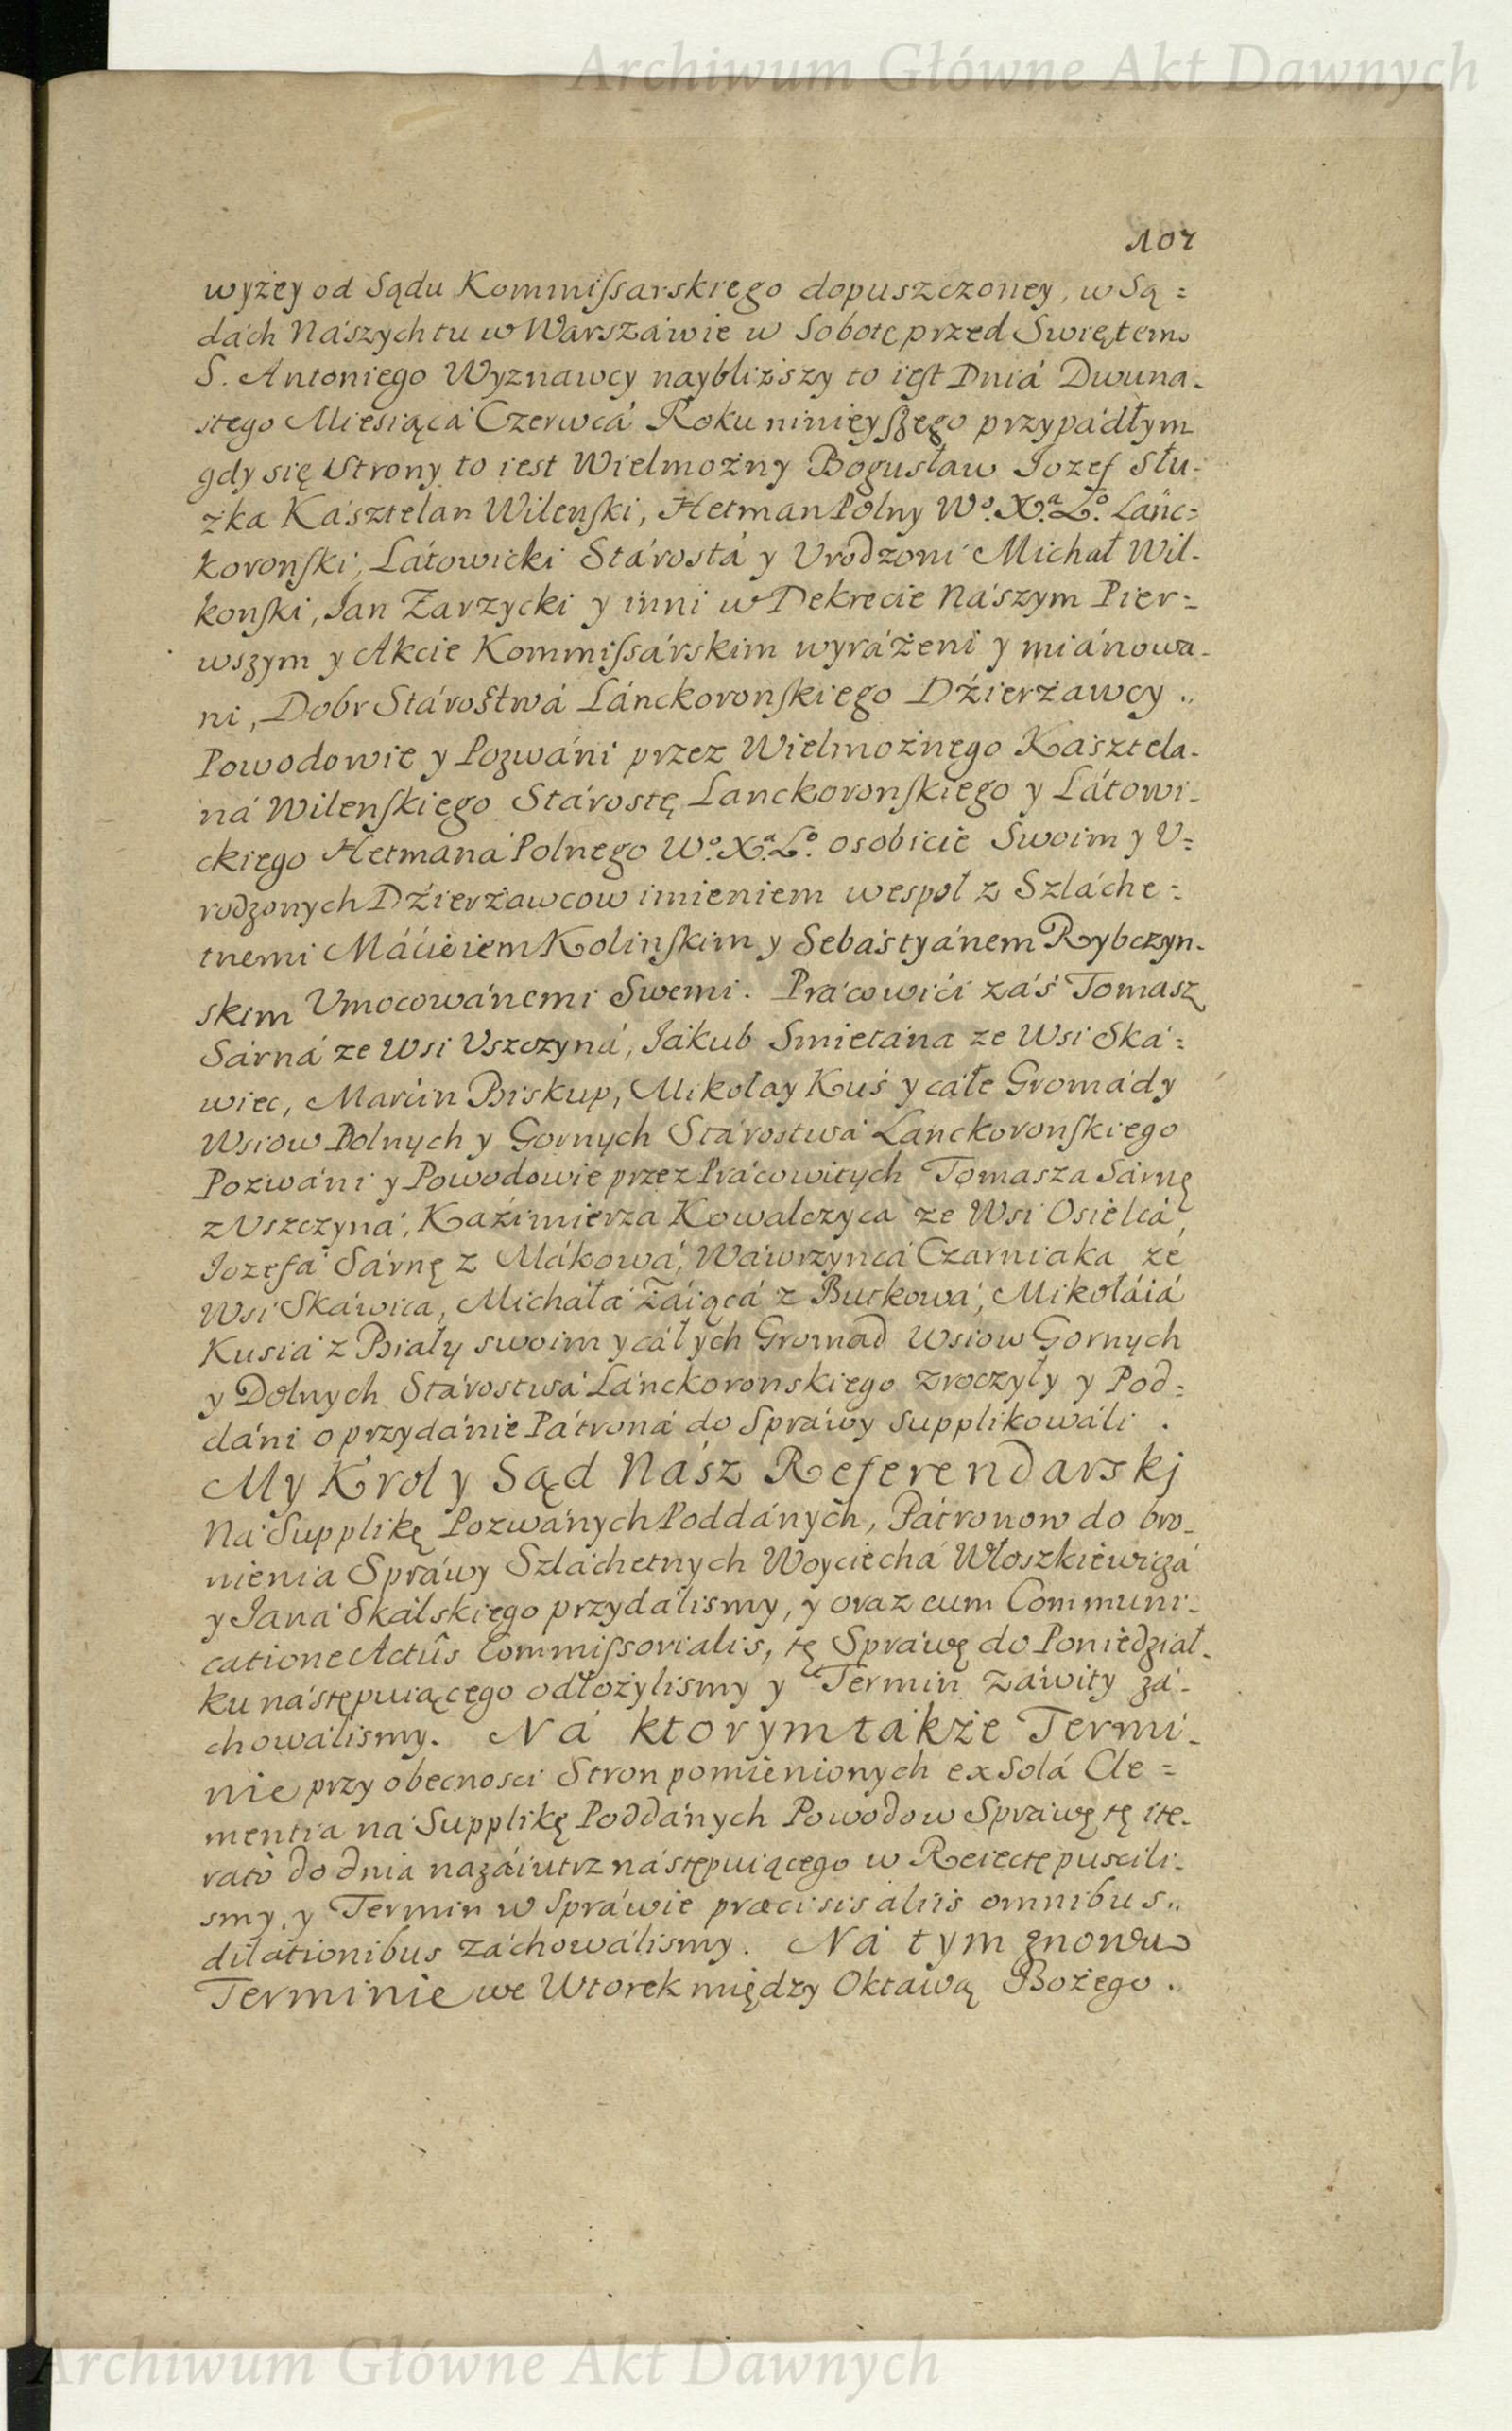 Archiwum Główne Akt Dawnych
107
wyżey od Sądu Kommissarskiego dopuszczoney, w Są=
dách Nászych tu w Wárszáwie w Sobotę przed Swiętem
S. Antoniego Wyznawcy naybliższy to iest Dniá Dwuna-
stego Miesiącá Czerwcá Roku ninieyszego przypádłym
gdy się Strony to iest Wielmożny Bogusław Jozef Słu-
zka Kásztelan Wilenski, Hetman Polny Wº. Xª. Lº. Lánc=
koronski, Látowicki Stárostá y Vrodzoni Michał Wil-
konski, Jan Zarzycki y inni w Dekrecie Nászym Pier=
wszym y Akcie Kommissárskim wyráżeni y miánowa-
ni, Dobr Stárostwá Lánckoronskiego Dźierżawcy..
Powodowie y Pozwáni przez Wielmożnego Kásztela-
ná Wilenskiego Stárostę Lanckoronskiego y Látowi-
ckiego Hetmana Polnego Wº. Xª. Lº. osobicie Swoim y V=
rodzonych Dźierżawcow imieniem wespoł z Szláche=
tnemi Máćieiem Kolinskim y Sebástyánem Rybczyn-
skim Vmocowánemi Swemi. Prácowići záś Tomasz
Sárná ze Wsi Vszczyná, Jákub Smietána ze Wsi Ská=
wiec, Marcin Biskup, Mikołay Kuś y całe Gromády
Wsiow Dolnych y Gornych Stárostwá Lanckoronskiego
Pozwáni y Powodowie przez Prácowitych Tomasza Sárnę
z Vszczyná, Kaźimierza Kowalczyca ze Wsi Osielcá,
Jozefá Sárnę z Mákowá, Wáwrzyncá Czarniaka ze
Wsi Skáwica, Micháłá Záiącá z Buckowá, Mikołáiá
Kusiá z Biały swoim y cáłych Gromad Wsiow Gornych
y Dolnych Stárostwá Lánckoronskiego zroczyły y Pod=
dáni o przydánie Pátroná do Spráwy supplikowáli.
My Krol y Sąd Nász Referendarski
Ná Supplikę Pozwánych Poddánych, Pátronow do bro-
nienia Spráwy Szláchetnych Woyciechá Włoszkiewiczá
y Janá Skálskiego przydálismy, y oraz cum Communi-
catione Actûs Commissorialis, tę Spráwę do Poniedział-
ku nástępuiącego odłożylismy y Termin záwity zá-
chowálismy. Ná ktorym tákże Termi-
nie przy obecnosci Stron pomienionych ex Solá Cle=
mentia ná Supplikę Poddánych Powodow Spráwę tę ite-
rato do dnia názáiutrz nástępuiącego w Reiectę puscili-
smy, y Termin w Spráwie præcisis aliis omnibus..
dilationibus záchowálismy. Ná tym znowu
Terminie we Wtorek między Oktawą Bożego.
Archiwum Główne Akt Dawnych